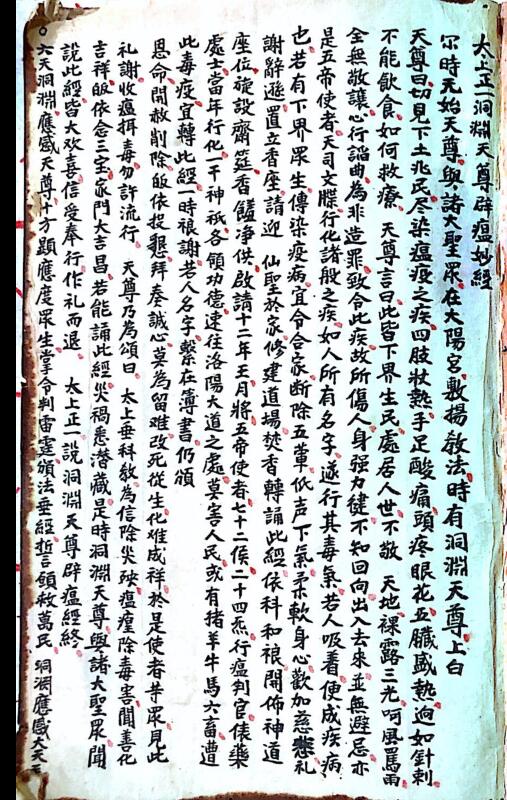 太上正一洞淵天尊辟瘟妙經
尒時元始天尊與諸大聖眾在大陽宮敷揚教法時有洞淵天尊上白
天尊曰切見下土兆民尽染瘟疫之疾四肢狀熱手足酸痛頭疼眼花五臟感熱逈如針刺
不能飲食如何救療 天尊言曰此皆下界生民處居人世不敬 天地裸露三光呵風罵雨
全無敬讓心行謟曲為非造罪致令此疾故所傷人身强力徤不知回向出入去來並無避忌亦
是五帝使者天司文牒行化諸般之疾如人所有名字遂行其毒氣若人吸着便成疾病
也若有下界眾生傳染疫病宜令合家断除五葷低声下氣柔軟身心歡加慈悲礼
謝辭遜置立香座請迎 仙聖於家修建道場焚香轉誦此經依科和禳開佈神道
座位旋設齋筵香饈净供啟請十二年王月將五帝使者七十二侯二十四炁行瘟判官俵藥
處士當年行化一干神祇各領功德速往洛陽大道之處莫害人民或有猪羊牛馬六畜遭
此毒疫宜轉此經一時禳謝若人名字繫在簿書仍頒
恩命開赦削除皈依投懇拜奏誠心莫為留难改死從生化难成祥於是使者芉眾見此
礼謝收瘟揖毒勿許流行 天尊乃為頌曰 太上垂科教為信除災殃瘟瘽除毒害聞善化
吉祥皈依念三宝家門大吉昌若能誦此經災禍悉潜藏是時洞淵天尊與諸大聖眾聞
說此經皆大欢喜信受奉行作礼而退 太上正一說洞淵天尊辟瘟經終
六天洞淵應感天尊十方顕應度眾生掌令判雷霆頒法垂經誓願救萬民 洞淵應感大天